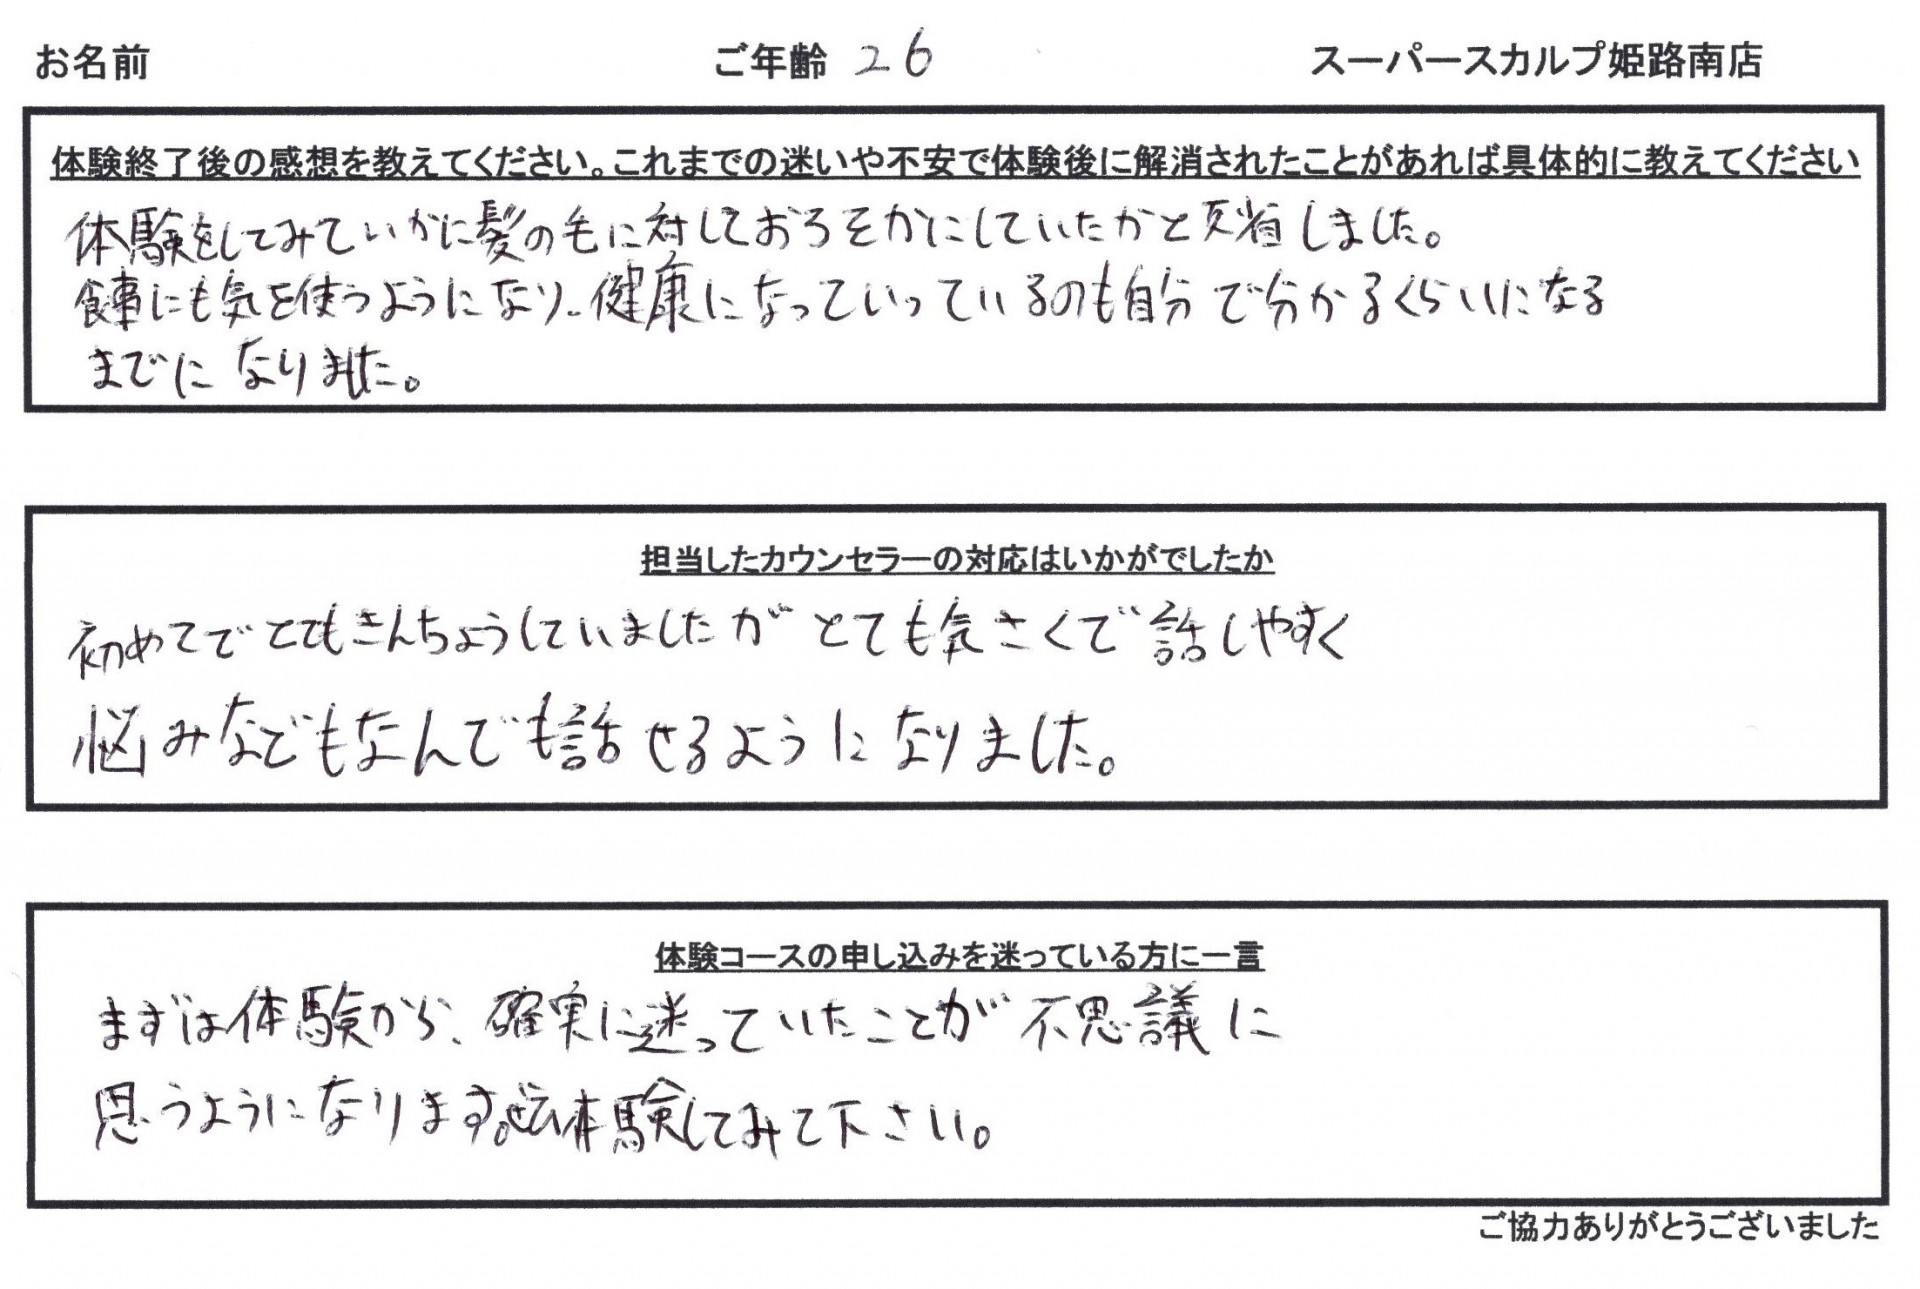 お名前 ご年齢 26 スーパースカルプ姫路南店
体験終了後の感想を教えてください。これまでの迷いや不安で体験後に解消されたことがあれば具体的に教えてください
体験をしてみていかに髪の毛に対しておろそかにしていたかと反省しました。
食事にも気を使うようになり、健康になっていっているのも自分で分かるくらいになる
までになりました。
担当したカウンセラーの対応はいかがでしたか
初めてでとてもきんちょうしていましたがとても気さくで話しやすく
悩みなどもなんでも話せるようになりました。
体験コースの申し込みを迷っている方に一言
まずは体験から、確実に迷っていたことが不思議に
思うようになります。ぜひ体験してみて下さい。
ご協力ありがとうございました